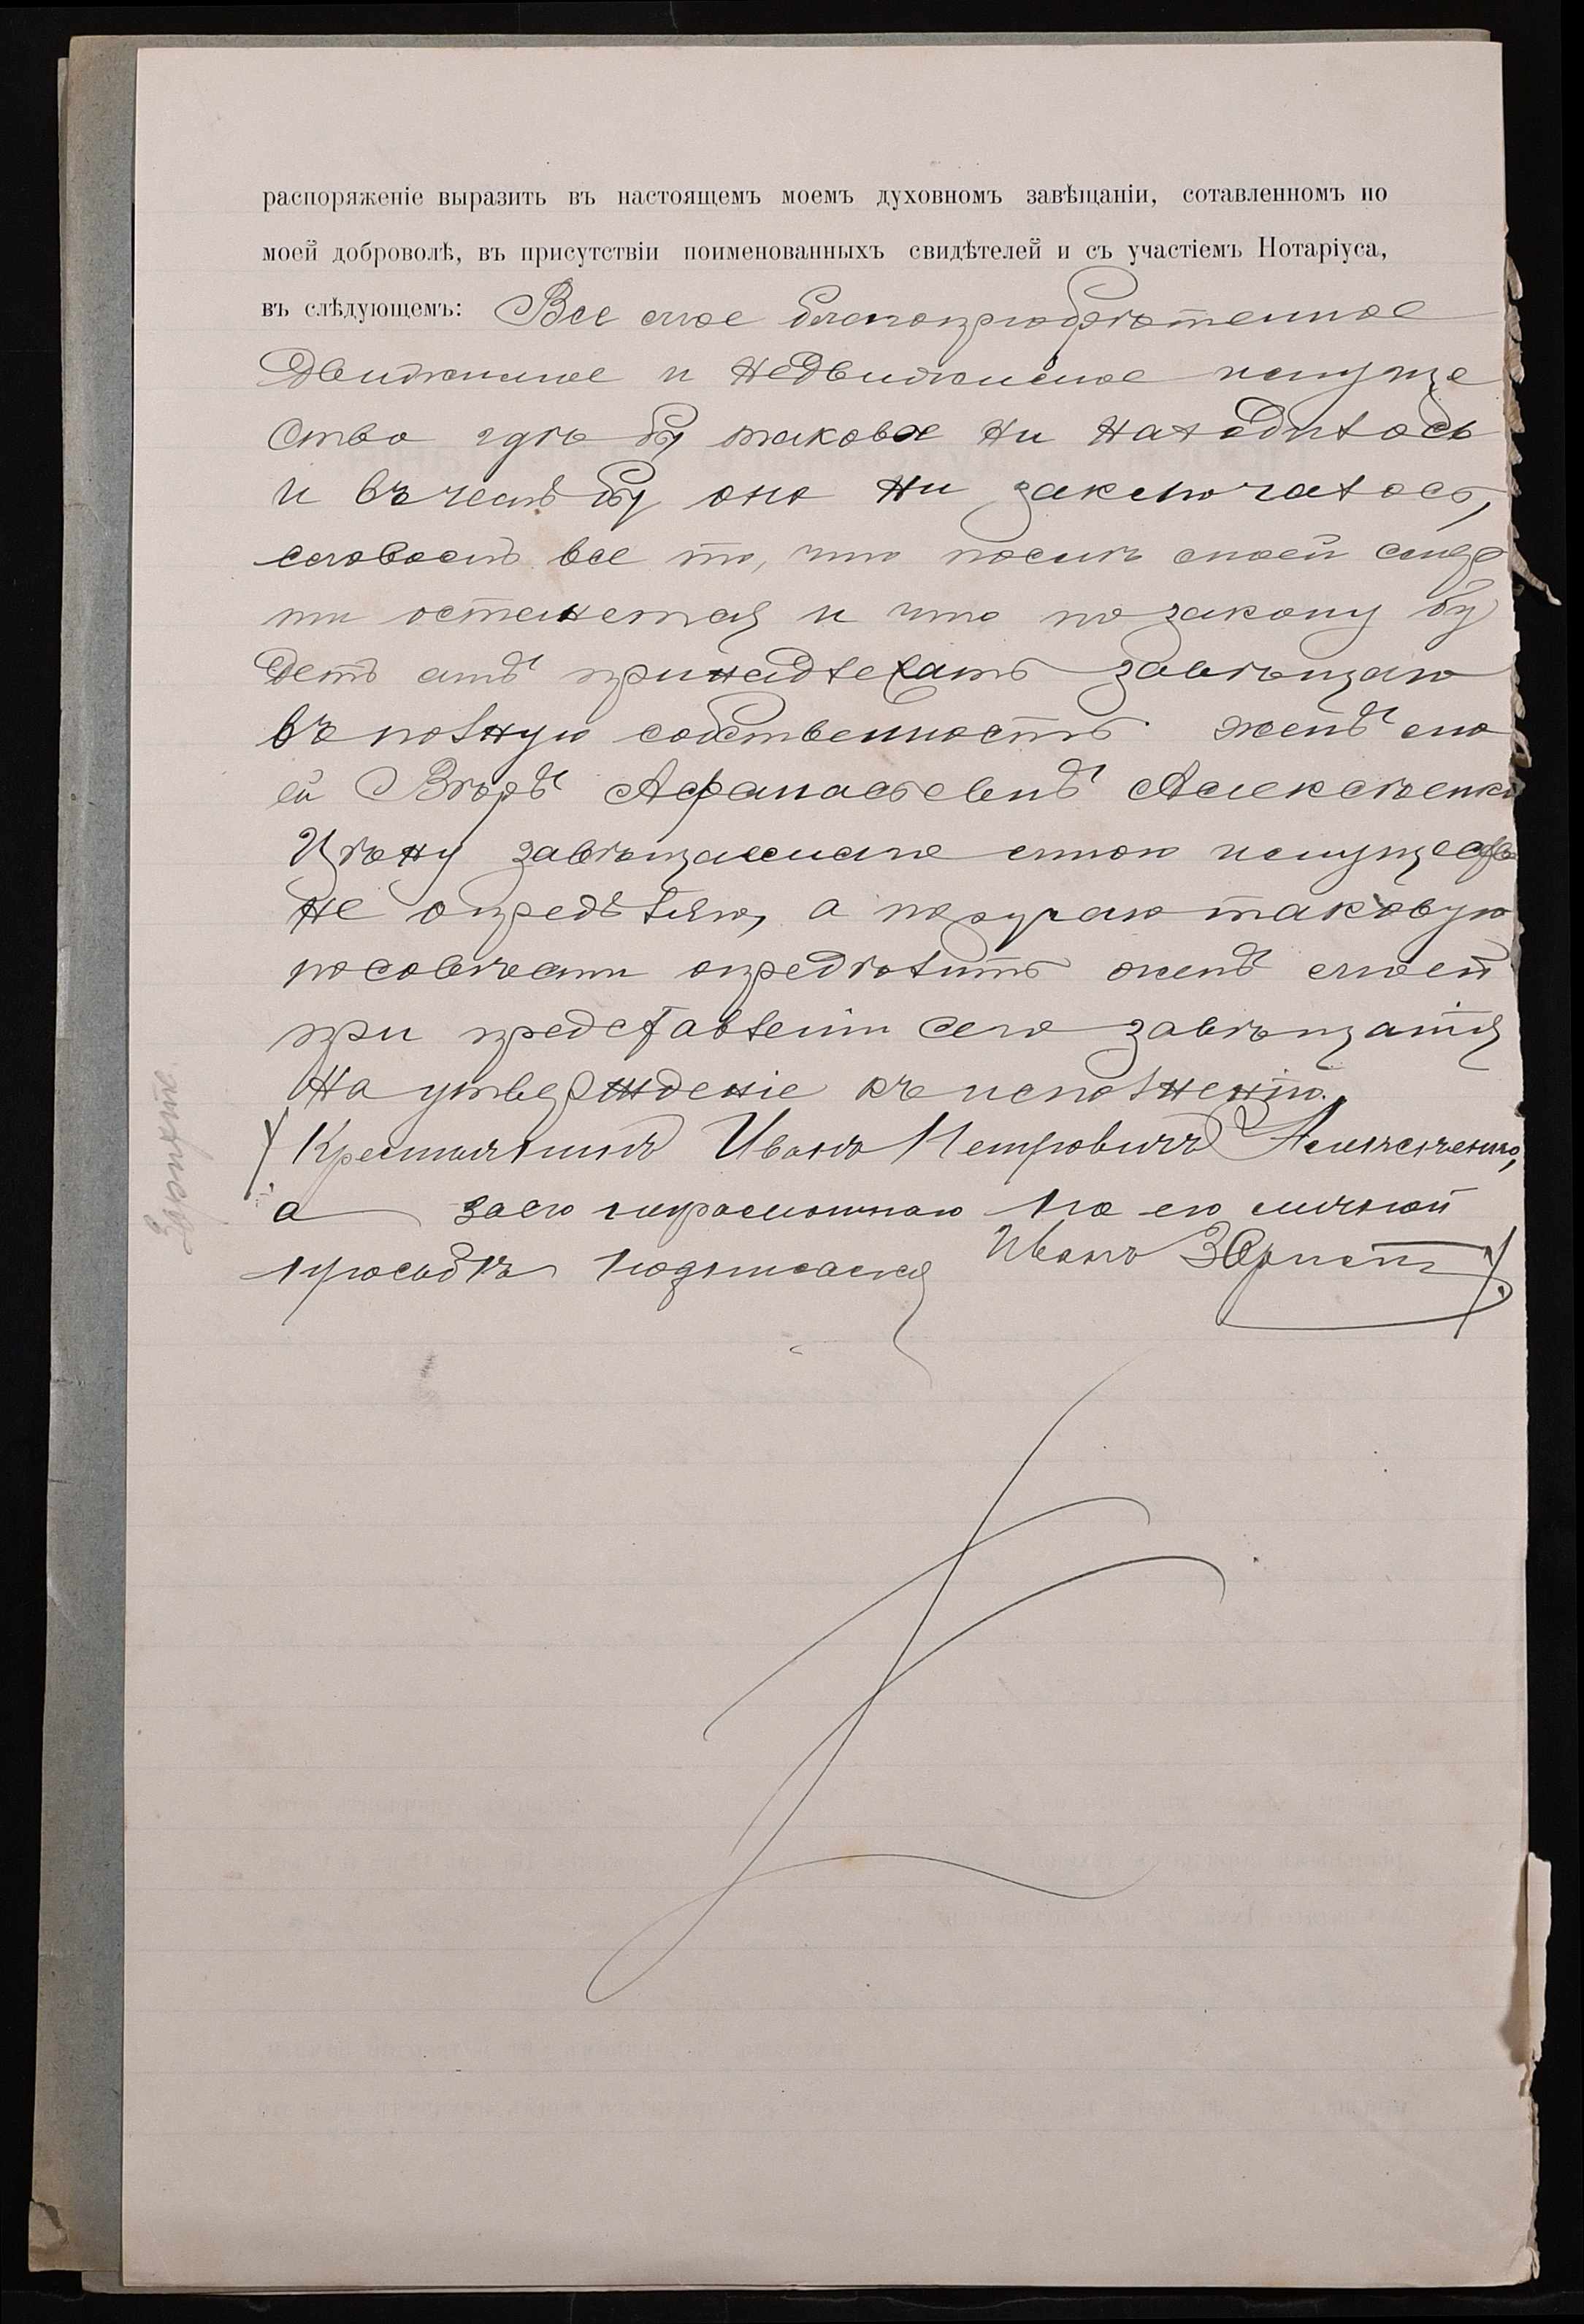 распоряженіе выразить въ настоящемъ моемъ духовномъ завѣщаніи, сотавленномъ по
моей доброволѣ, въ присутствіи поименованныхъ свидѣтелей и съ участіемъ Нотаріуса,
въ слѣдующемъ: Все мое благопріобрѣтенное
движимое и недвижимое имуще
ство гдѣ бы таковое ни находилось
и въ чемъ бы оно ни заключалось,
словомъ все то, что послѣ моей смер
ти останется и что по закону бу
детъ мнѣ принадлежать завѣщаю
въ полную собственность женѣ мо
ей Вѣрѣ Афанасьевнѣ Алексѣенко
Цѣну завѣщаемаго мною имущества
не опредѣляю, а поручаю таковую
по совѣсти опредѣлить женѣ моей
при представленіи сего завѣщанія
на утвержденіе къ исполненію.
Крестьянинъ Иванъ Петровичъ Алексѣенко,
а за его неграмотного по его личной
просьбѣ подписался Иванъ